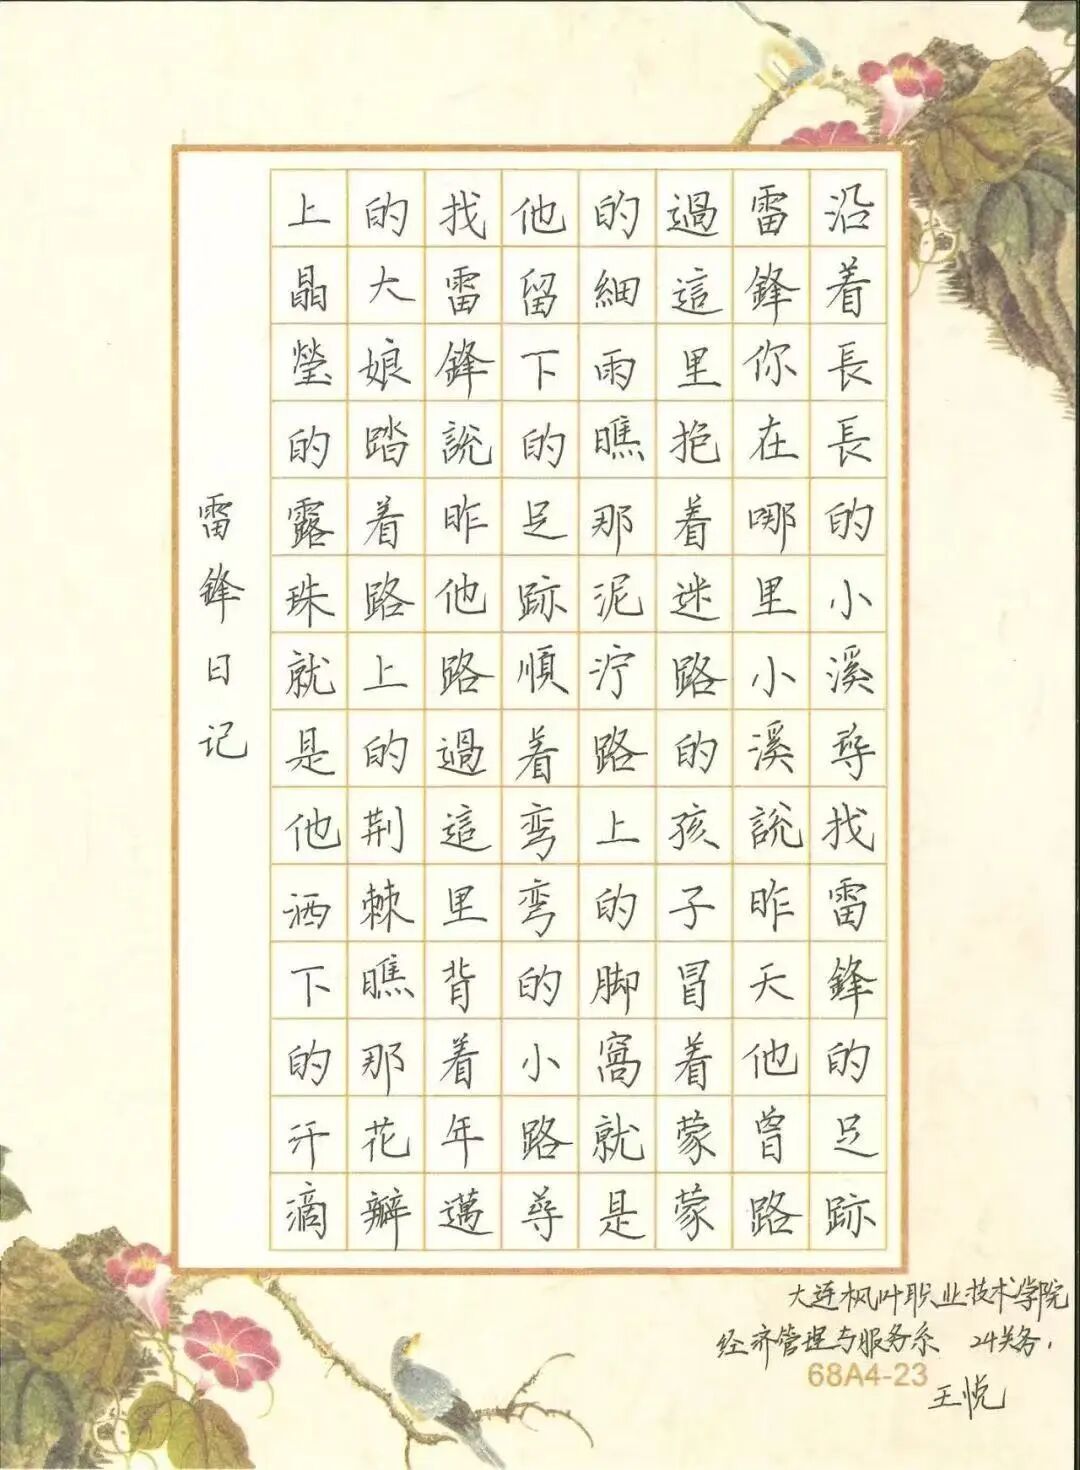 沿着長長的小溪尋找雷鋒的足跡
雷鋒你在哪里小溪説昨天他曾路
過這里抱着迷路的孩子冒着蒙蒙
的細雨瞧那泥濘路上的脚窩就是
他留下的足跡順着弯弯的小路尋
找雷鋒説昨他路過這里背着年邁
的大娘踏着路上的荆棘瞧那花瓣
上晶瑩的露珠就是他洒下的汗滴
雷鋒日记
大连枫叶职业技术学院
经济管理与服务系 24关务.
68A4-23
王悦